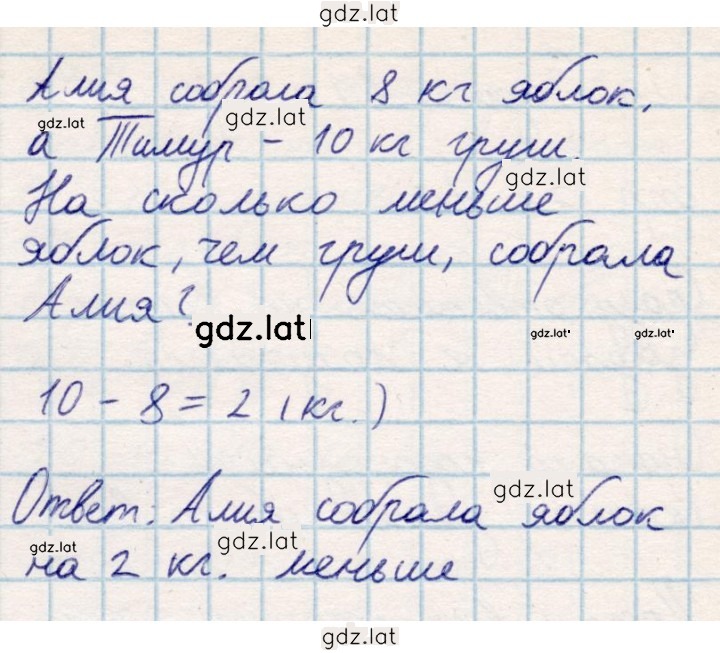 gdz.lat
Алия собрала 8 кг яблок,
gdz.lat gdz.lat
а Тимур - 10 кг груш.
gdz.lat
На сколько меньше
яблок, чем груш, собрала
Алия?
gdz.lat gdz.lat gdz.lat
10 - 8 = 2 (кг.)
gdz.lat
Ответ: Алия собрала яблок
gdz.lat gdz.lat
на 2 кг. меньше
gdz.lat